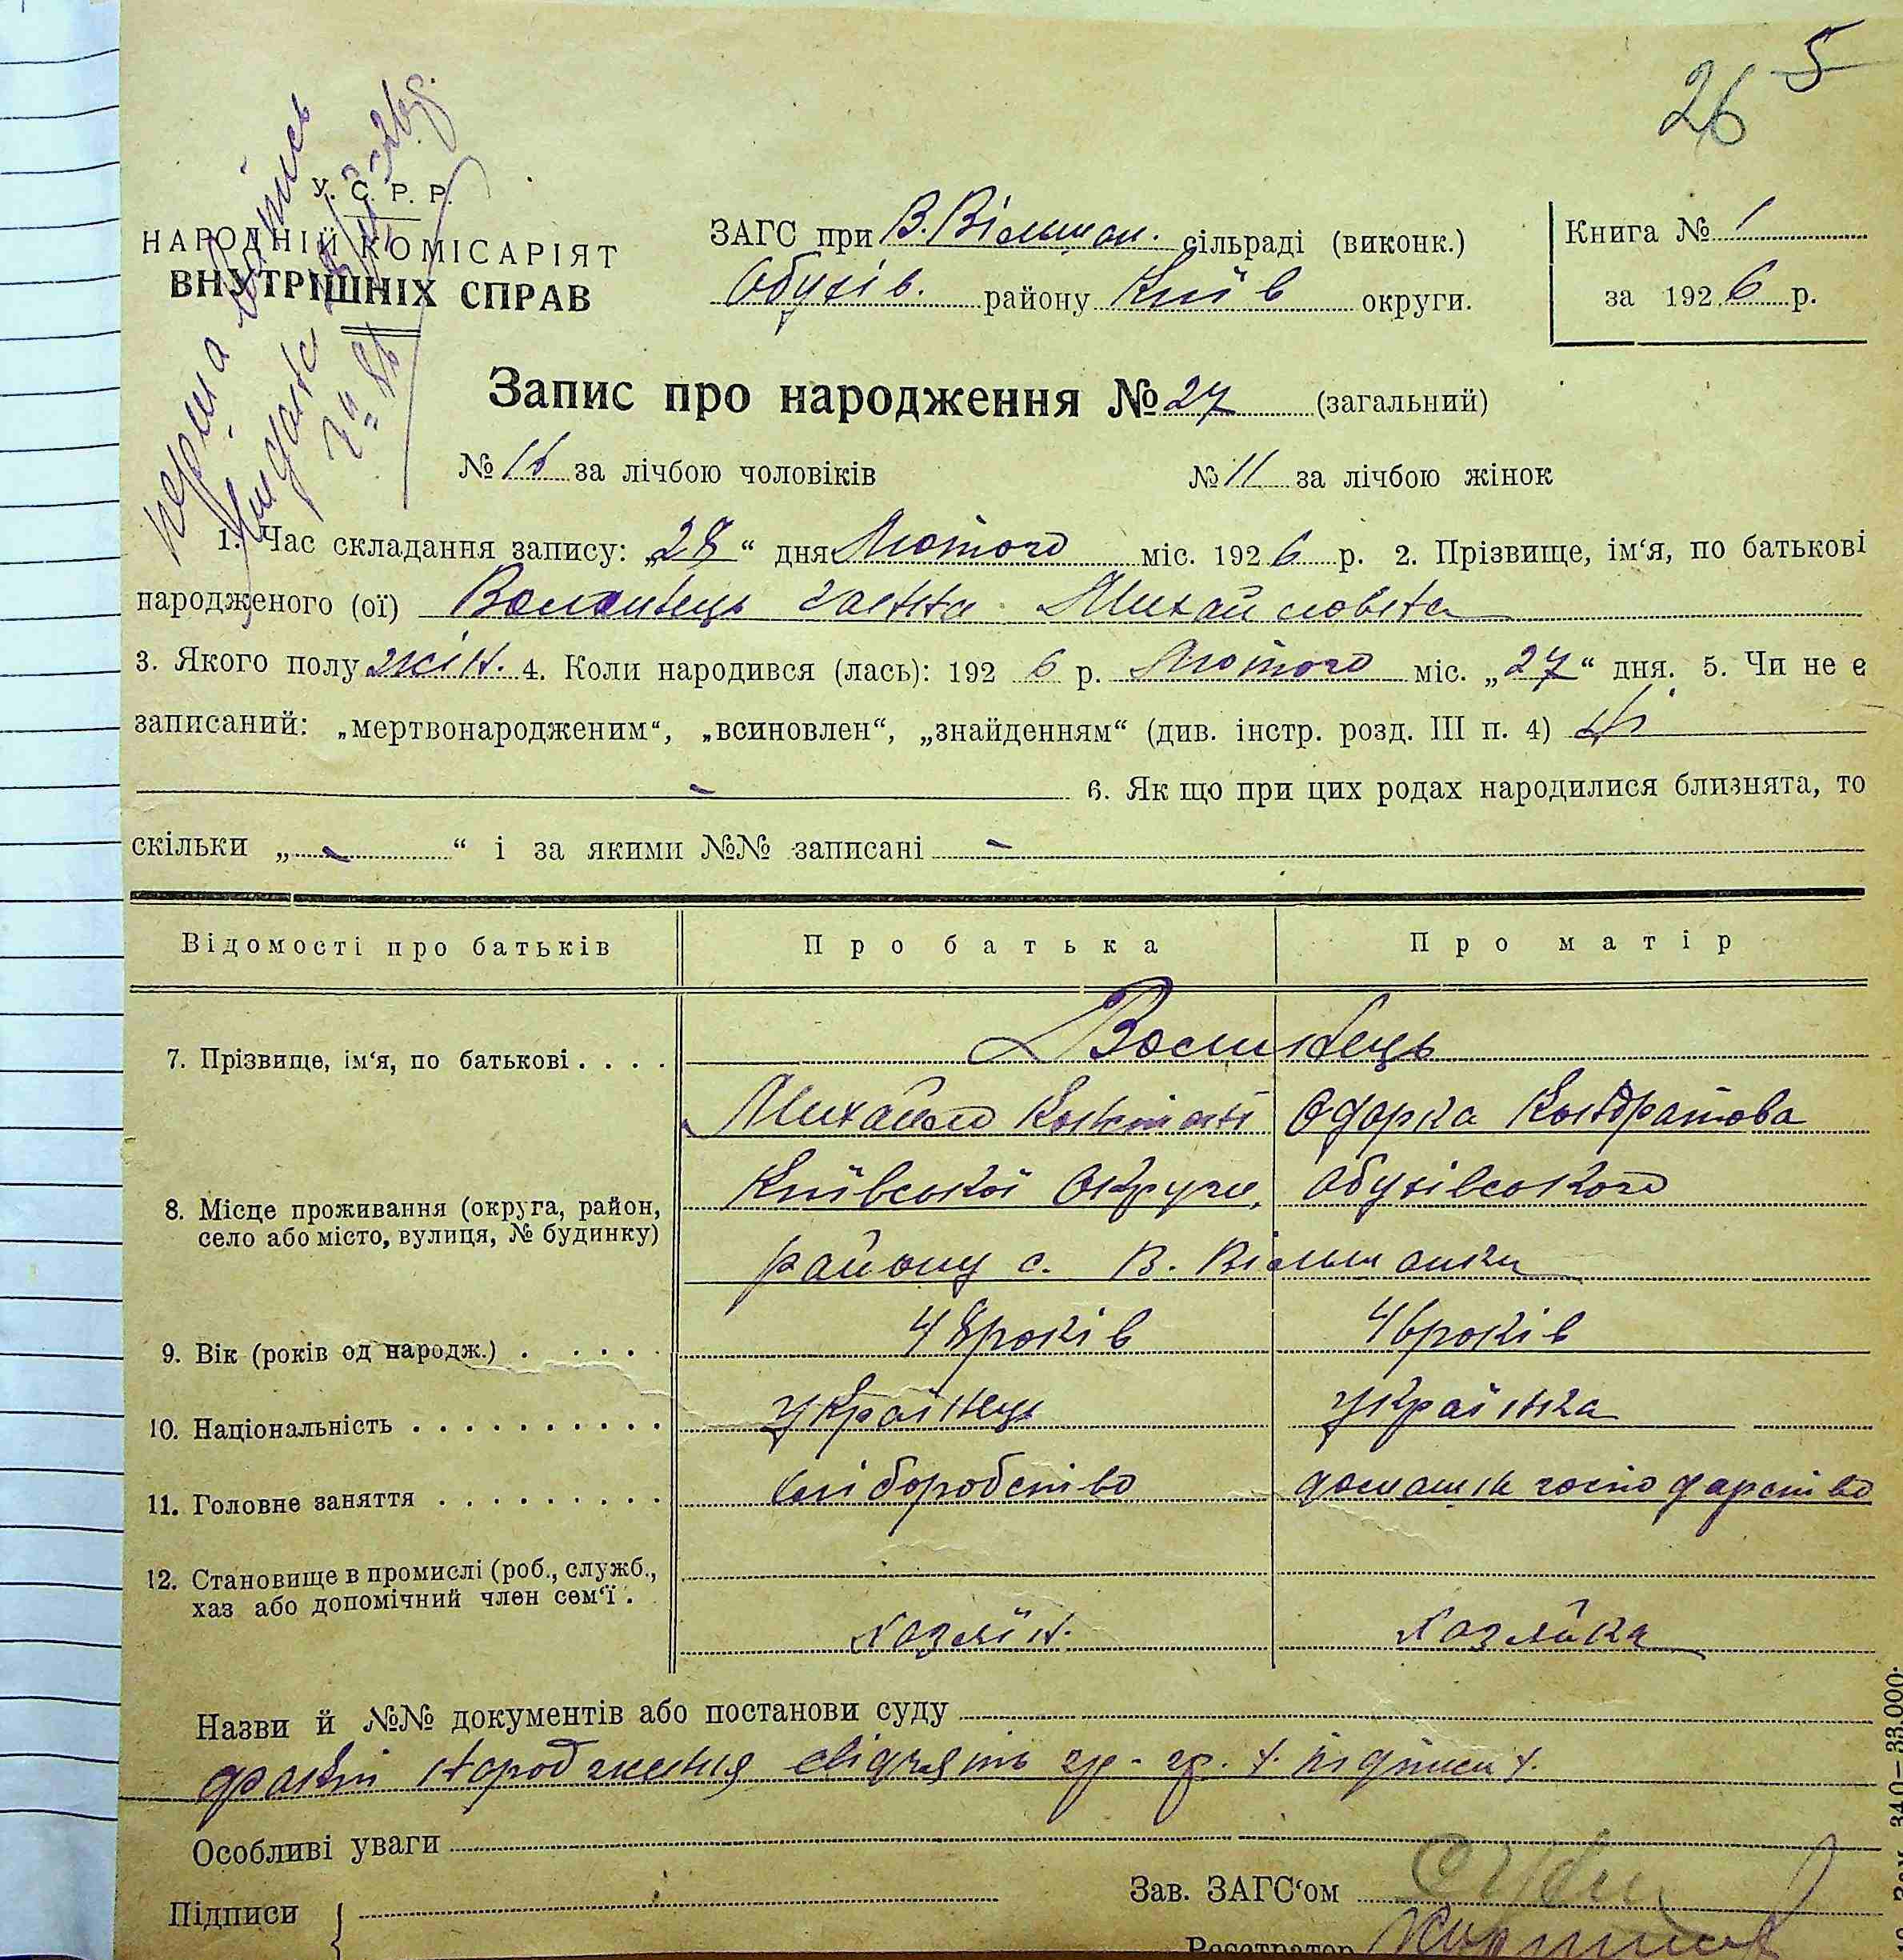 26 5
У. С. Р. Р.
НАРОДНІЙ КОМІСАРІЯТ
ВНУТРІШНІХ СПРАВ
ЗАГС при В. Вільшан. сільраді (виконк.)
Обухів. району Київ округи.
Книга № 1
за 1926 р.
Запис про народження № 27 (загальний)
№ 16 за лічбою чоловіків
№ 11 за лічбою жінок
1. Час складання запису: „28“ дня Лютого міс. 1926 р. 2. Прізвище, ім‘я, по батькові
народженого (ої) Ганна Михайловна
3. Якого полу жін. 4. Коли народився (лась): 1926 р. Лютого міс. „27“ дня. 5. Чи не є
записаний: „мертвонародженим“, „всиновлен“, „знайденням“ (див. інстр. розд. III п. 4) Ні
- 6. Як що при цих родах народилися близнята, то
скільки „-“ і за якими №№ записані -
Відомості про батьків
Про батька
Про матір
7. Прізвище, ім‘я, по батькові . . . .
Михайло Одарка Кондратова
8. Місце проживання (округа, район,
село або місто, вулиця, № будинку)
Київської Округи, Обухівського
району с. В. Вільшанки
9. Вік (років од народж.) . . . . . 48 років 46 років
10. Національність . . . . . . . . . . Українець Українка
11. Головне заняття . . . . . . . . . хліборобство домашн господарство
12. Становище в промислі (роб., служб.,
хаз або допомічний член сем‘ї .
хазяїн. хазяйка
Назви й №№ документів або постанови суду
факт народження свідчать гр-гр.
Особливі уваги
Підписи
Зав. ЗАГС‘ом
Реєстратор